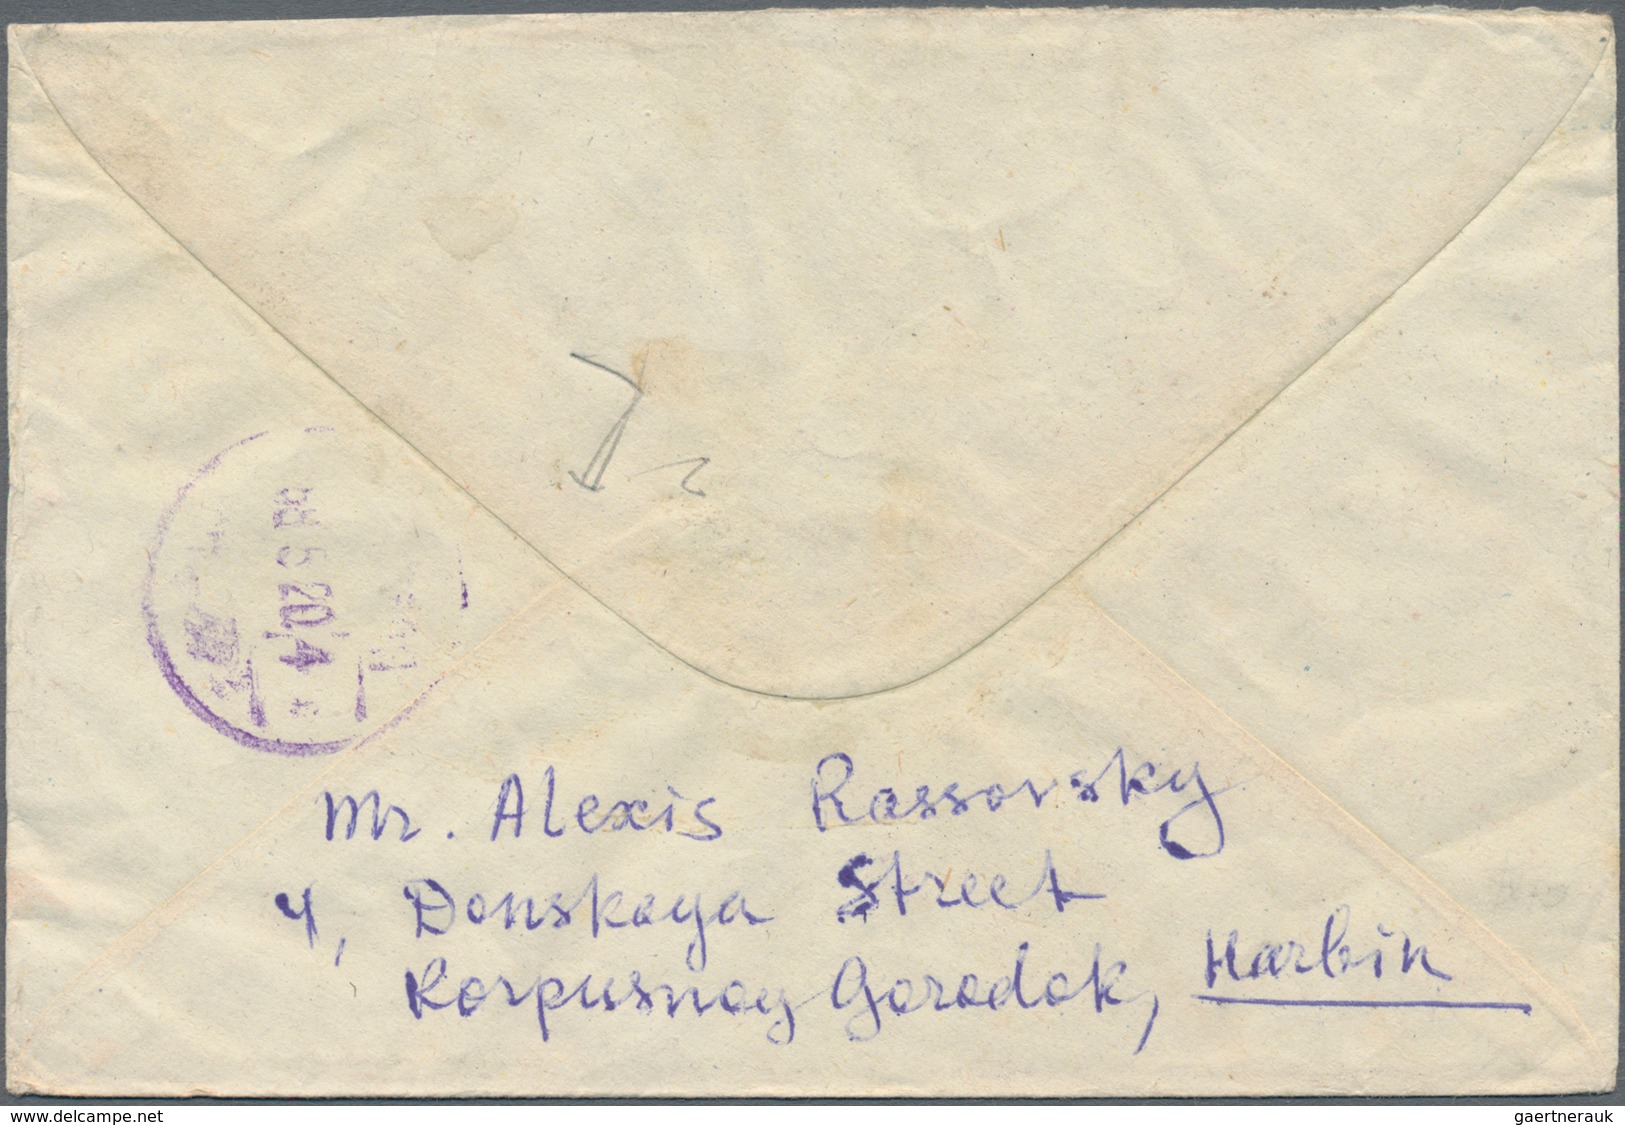 Mr. Alexis Rassovsky
4, Donskaya Street
Korpusnoy Gorodok, Harbin
www.delcampe.net
gaertnerauk